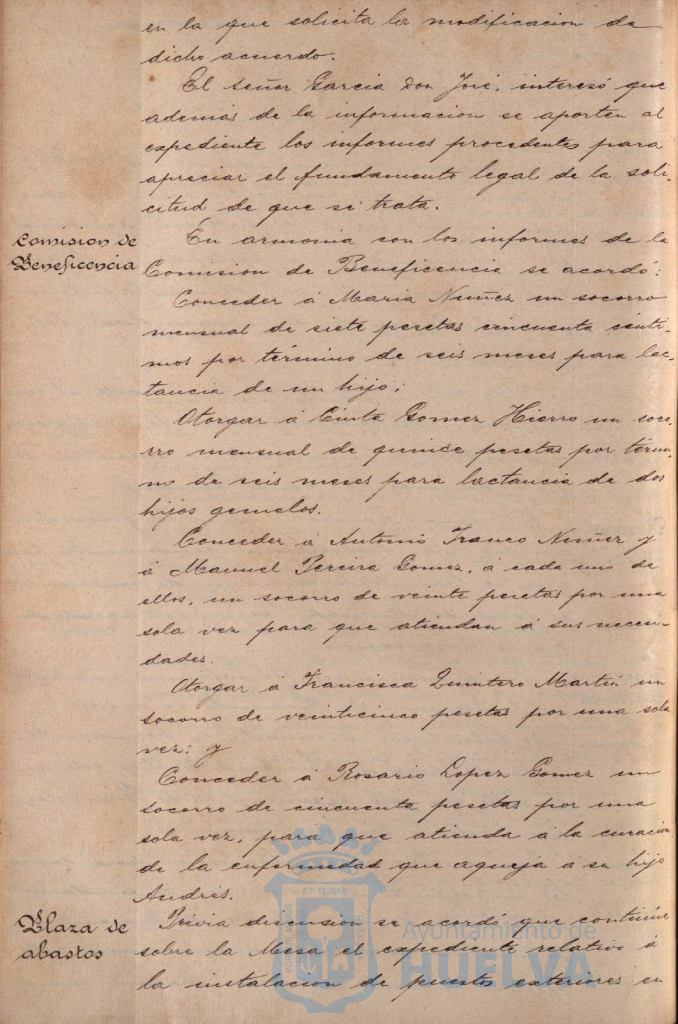 en la que solicita la modificacion de
dicho acuerdo.
El señor Garcia Don José, interesó que
ademas de la informacion se aporten al
expediente los informes procedentes para
apreciar el fundamento legal de la soli-
citud de que se trata.
Comision de
Beneficencia
En armonia con los informes de la
Comision de Beneficencia se acordó:
Conceder á Maria Nuñez un socorro
mensual de siete pesetas cincuenta cénti-
mos por término de seis meses para lac-
tancia de un hijo;
Otorgar á Cinta Gomez Hierro un soco-
rro mensual de quince pesetas por térmi-
no de seis meses para lactancia de dos
hijos gemelos.
Conceder á Antonio Franco Nuñez y
á Manuel Pereira Gomez, á cada uno de
ellos, un socorro de veinte pesetas por una
sola vez para que atiendan á sus necesi-
dades.
Otorgar á Francisca Quintero Martin un
socorro de veinticinco pesetas por una sola
vez; y
Conceder á Rosario Lopez Gomez un
socorro de cincuenta pesetas por una
sola vez, para que atienda á la curación
de la enfermedad que aqueja á su hijo
Andrés.
Plaza de
abastos
Prévia discusion se acordó que continúe
sobre la Mesa el expediente relativo á
la instalacion de puestos exteriores en
ET TERRA
Ayuntamiento de
HUELVA